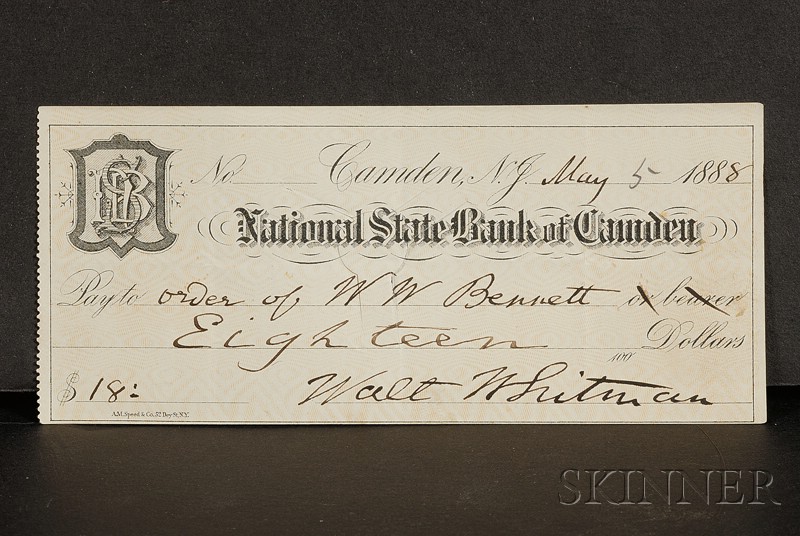 NSB
No. Camden, N.J. May 5 1888
National State Bank of Camden
Pay to order of W W Bennett or bearer
Eighteen 100 Dollars
$ 18: Walt Whitman
A.M. Speed & Co. 52 Dey St. N.Y.
SKINNER